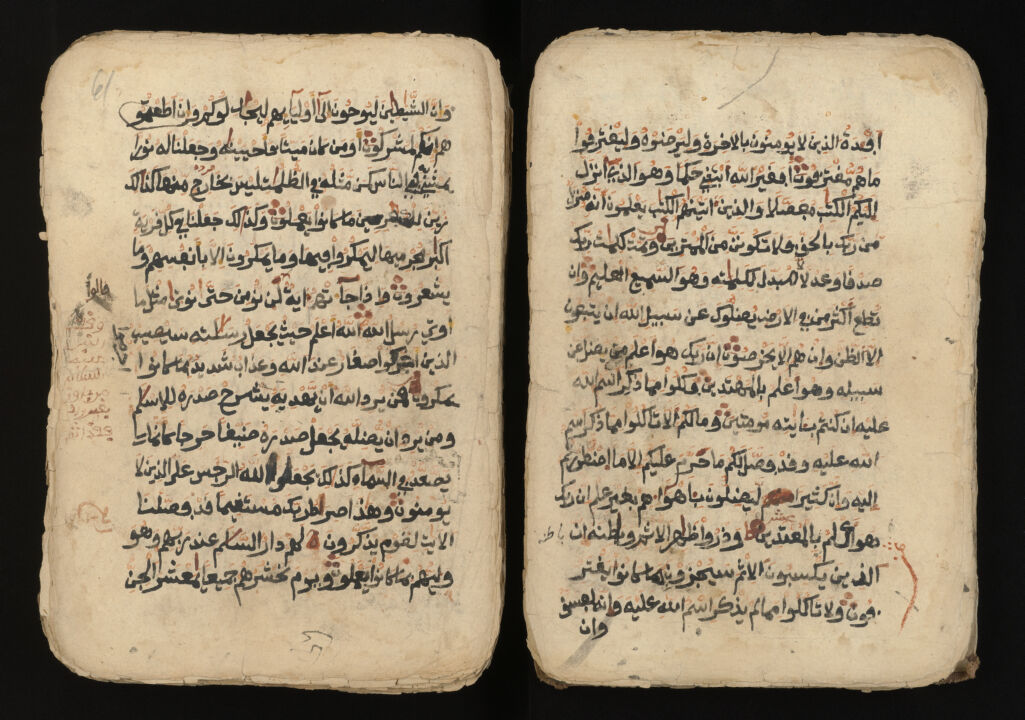 افدة الذين لا يومنون بالاخرة وليرضوه وليقترفوا
ما هم مقترفون افغير الله ابتغي حكما وهو الذي انزل
اليكم الكتب مفصلا والذين اتينهم الكتب يعلمون انه منزل
من ربك بالحق ولا تكونن من الممترين وتمت كلمت ربك
صدقا وعدلا لا مبدل لكلمته وهو السميع العليم وان
تطع اكثر من في الارض يضلوك عن سبيل الله ان يتبعون
الا الظن وان هم الا يخرصون ان ربك هو اعلم من يضل عن
سبيله وهو اعلم بالمهتدين فكلوا مما ذكر اسم الله
عليه ان كنتم بايته مومنين وما لكم الا تاكلوا مما ذكر اسم
الله عليه وقد فصل لكم ما حرم عليكم الا ما اضطررتم
اليه وان كثيرا ليضلون باهواهم بغير علم ان ربك
هو اعلم بالمعتدين وذروا ظهر الاثم وباطنه ان
الذين يكسبون الاثم سيجزون بما كانوا يقتر
فون ولا تاكلوا مما لم يذكر اسم الله عليه وانه لفسق
وان
وان الشيطين ليوحون الى اوليايهم ليجدلوكم وان اطعتمو
هم انكم لمشركون اومن كان ميتا فاحيينه وجعلنا له نورا
يمشي به في الناس كمن مثله في الظلمت ليس بخارج منها كذلك
زين للكفرين ما كانوا يعملون وكذلك جعلنا في كل قرية
اكبر مجرميها ليمكروا فيها وما يمكرون الا بانفسهم وما
يشعرون واذا جاتهم اية لن نومن حتى نوتى مثل ما
اوتي رسل الله الله اعلم حيث يجعل رسلته سيصيب
الذين اجرموا صغار عند الله وعذاب شديد بما كانوا
يمكرون فمن يرد الله ان يهديه يشرح صدره للاسلم
ومن يرد ان يضله يجعل صدره ضيقا حرجا كانما
يصعد في السماء كذلك يجعل الله الرجس على الذين لا
يومنون وهذا صراط ربك مستقيما قد فصلنا
الايت لقوم يذكرون لهم دار السلم عند ربهم وهو
وليهم بما كانوا يعملون ويوم نحشرهم جميعا يمعشر الجن